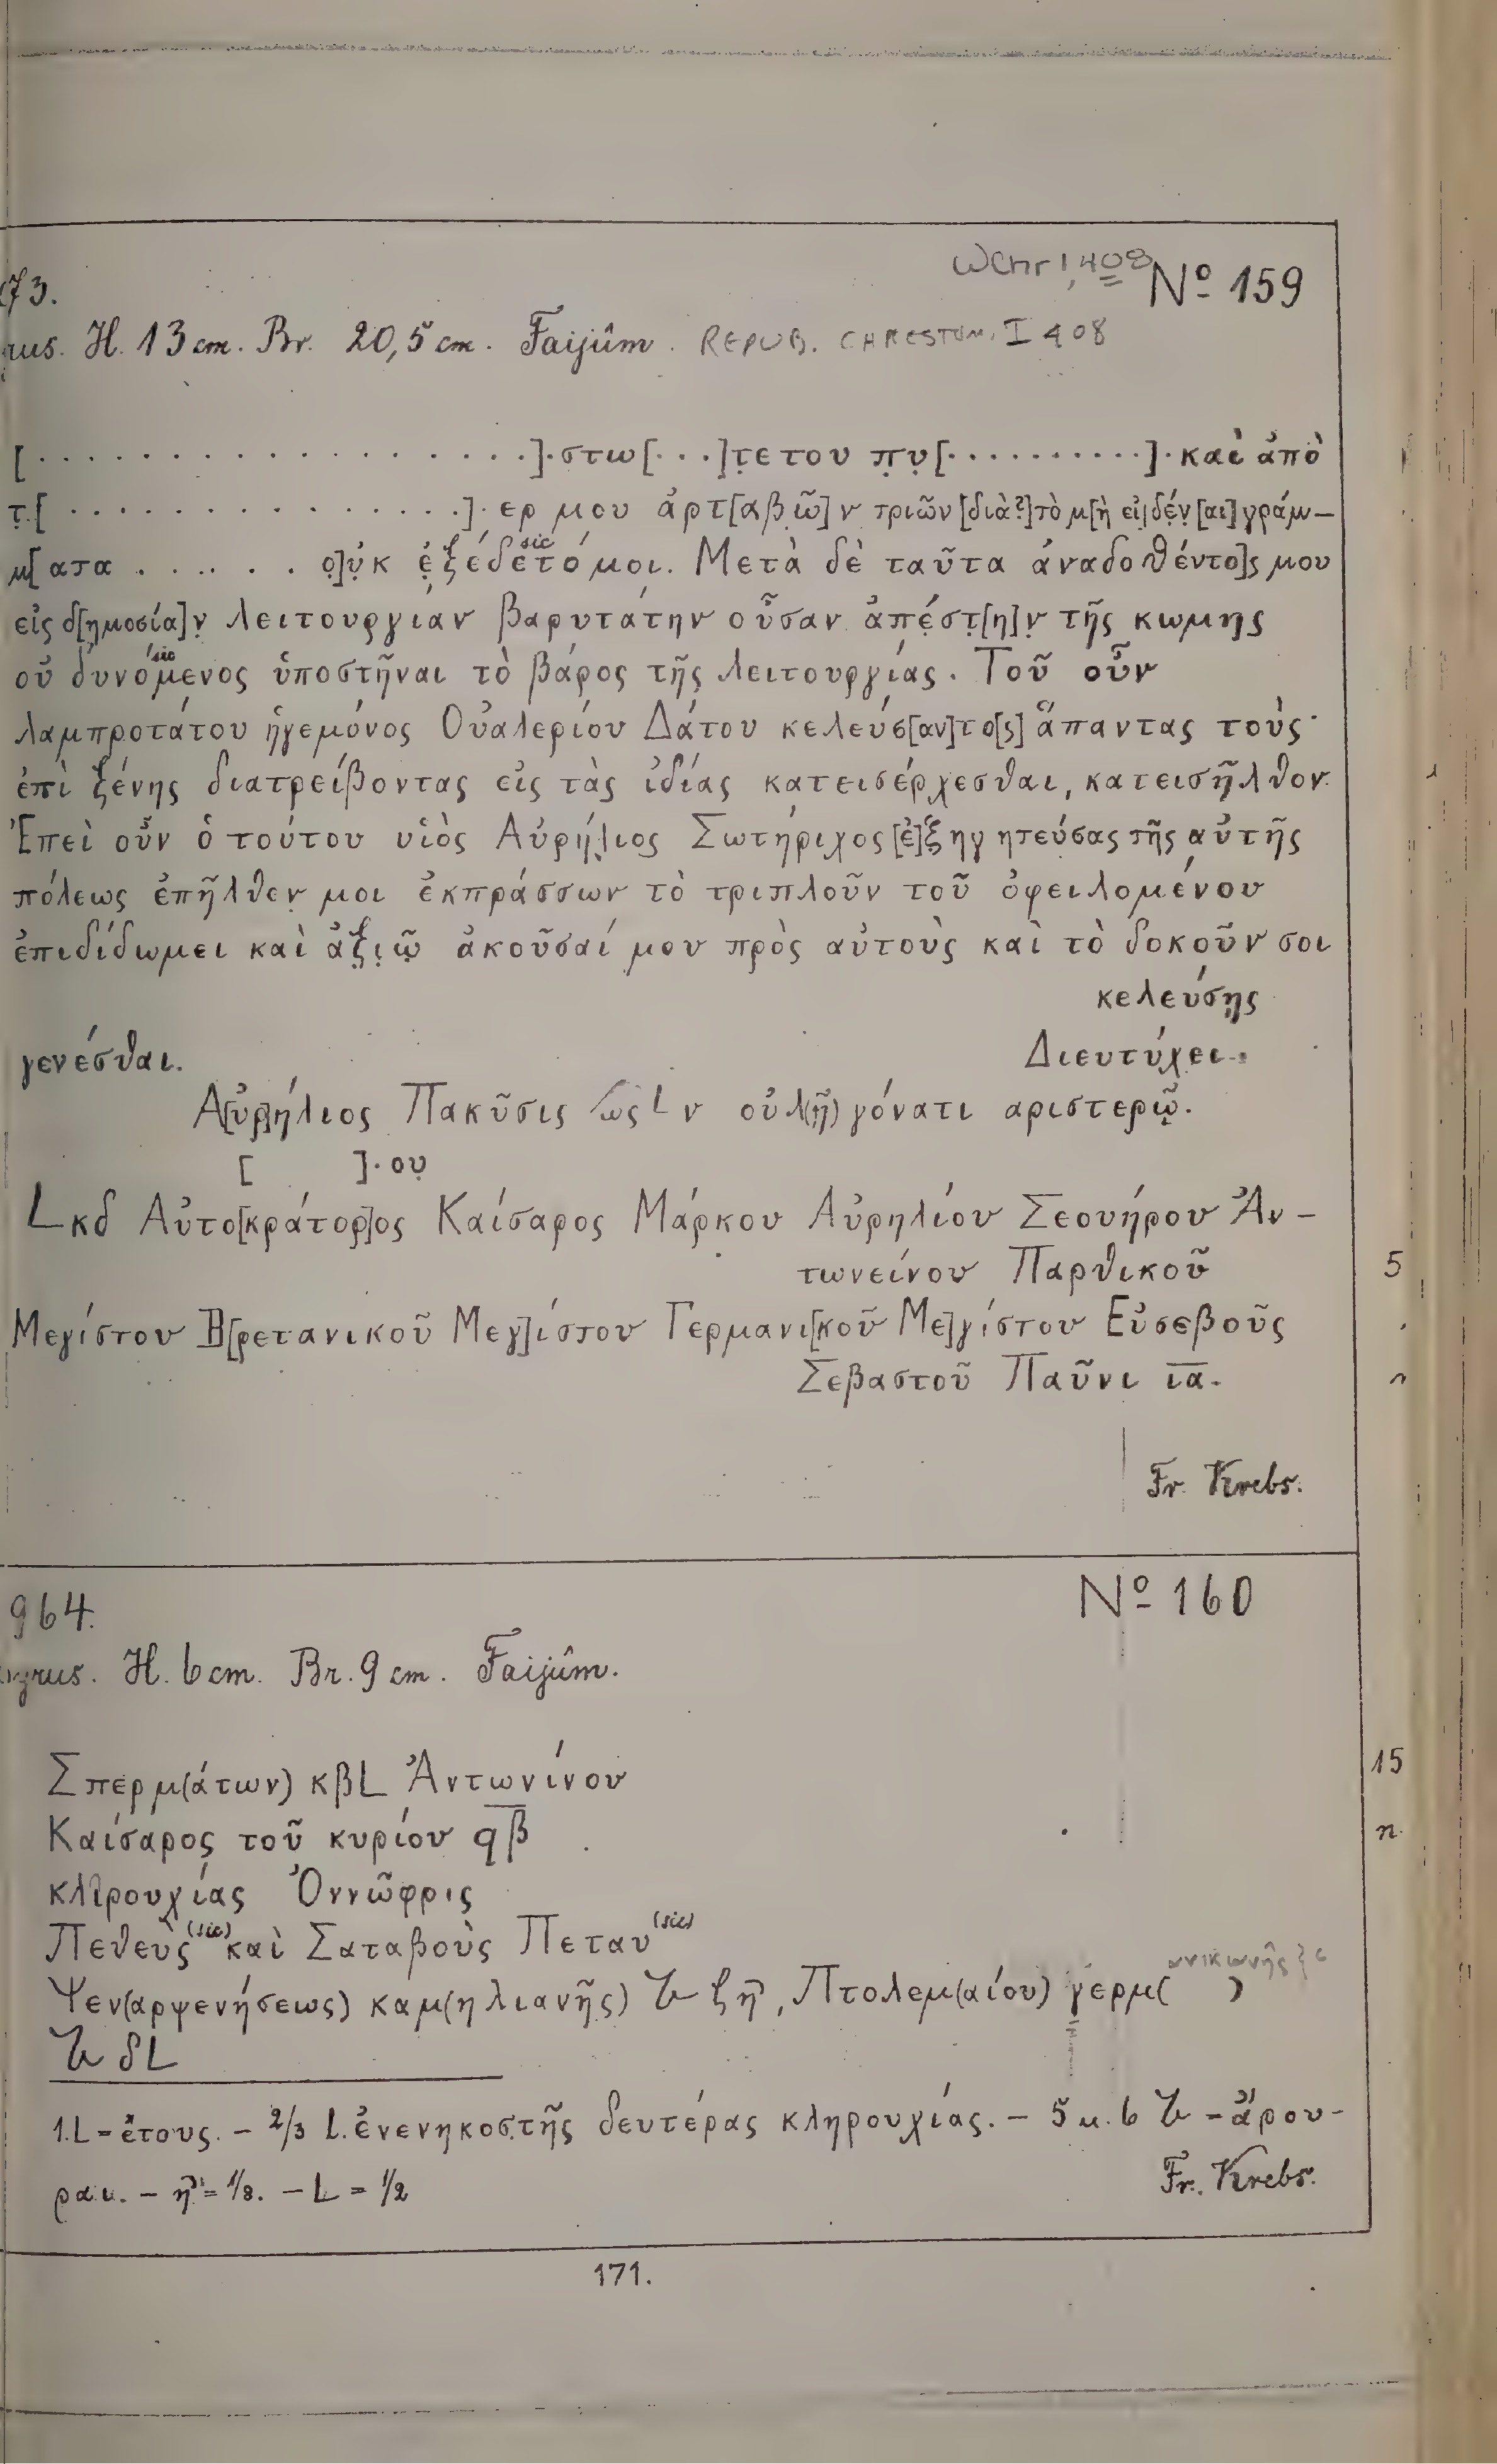 WChr I, 408 Nº 159
73.
rus. H. 13 cm. Br. 20,5 cm. Faijûm. REPUB. CHRESTOM. I 408
[. . . . . . . . . . . . . . . . . .]·στω[. . .]τ̣ε του π̣υ̣[. . . . . . . . . .]· καὶ ἀπὸ
τ̣.[. . . . . . . . . . . . . . .]· ερ μου ἀρτ[αβῶ]ν τριῶν [διὰ?] τὸ μ[ὴ εἰ]δέ̣ν̣[αι] γράμ–
μ[ατα . . . . . . ο]ὐ̣κ ἐ̣ξέδετό (sic) μοι. Μετὰ δὲ ταῦτα ἀναδοθέντο]ς μου
εἰς δ[ημοσία]ν̣ λειτουργίαν βαρυτάτην οὖσαν ἀπέ̣στ̣[η]ν̣ τῆς κωμης
οὐ δυνόμενος (sic) ὑποστῆναι τὸ βάρος τῆς λειτουργίας. Τοῦ οὖν
λαμπροτάτου ἡγεμόνος Οὐαλερίου Δάτου κελεύσ[αν]το[ς] ἅπαντας τοὺς
ἐπὶ ξένης διατρείβοντας εἰς τὰς ἰδίας κατεισέρχεσθαι, κατεισῆλθον.
Ἐπεὶ οὖν ὁ τούτου υἱὸς Αὐρήλ̣ιος Σωτήριχος [ἐ]ξηγητεύσας τῆς αὐτῆς
πόλεως ἐπῆλθέν̣ μοι ἐκπράσσων τὸ τριπλοῦν τοῦ ὀφειλομένου
ἐπιδίδωμει καὶ ἀξ̣ι̣ῶ̣ ἀκοῦσαί μου πρὸς αὐτοὺς καὶ τὸ δοκοῦν σοι
κελεύσῃς
γενέσθαι. Διευτύχει.
Α[ὐρ]ήλιος Πακῦσις ὡς L ν οὐλ(ὴ) γόνατι αριστερῷ.
[ ]·ου̣
L κδ Αὐτο[κράτορ]ος Καίσαρος Μάρκου Αὐρηλίου Σεουήρου Ἀν–
τωνείνου Παρθικοῦ
Μεγίστου Β[ρετανικοῦ Μεγ]ίστου Γερμανι[κοῦ Με]γίστου Εὐσεβοῦς
Σεβαστοῦ Παῦνι ια.
Fr. Krebs.
964. Nº 160
yrus. H. 6 cm. Br. 9 cm. Faijûm.
Σπερμ(άτων) κβL Ἀντωνίνου
Καίσαρος τοῦ κυρίου ϙβ
κληρουχίας Ὀννῶφρις
Πεθεὺς (sic) καὶ Σαταβοὺς Πεταυ (sic)
Ψεν(αρψενήσεως) καμ(ηλιανῆς) 𐆄 ζη, Πτολεμ(αίου) γερμ( )
𐆄 δL
1. L = ἔτους. – 2/3 l. ἐνενηκοστῆς δευτέρας κληρουχίας. – 5 u. 6 𐆄 = ἄρου-
ραι. – η = 1/8. – L = 1/2
Fr. Krebs.
171.
5
15
n.